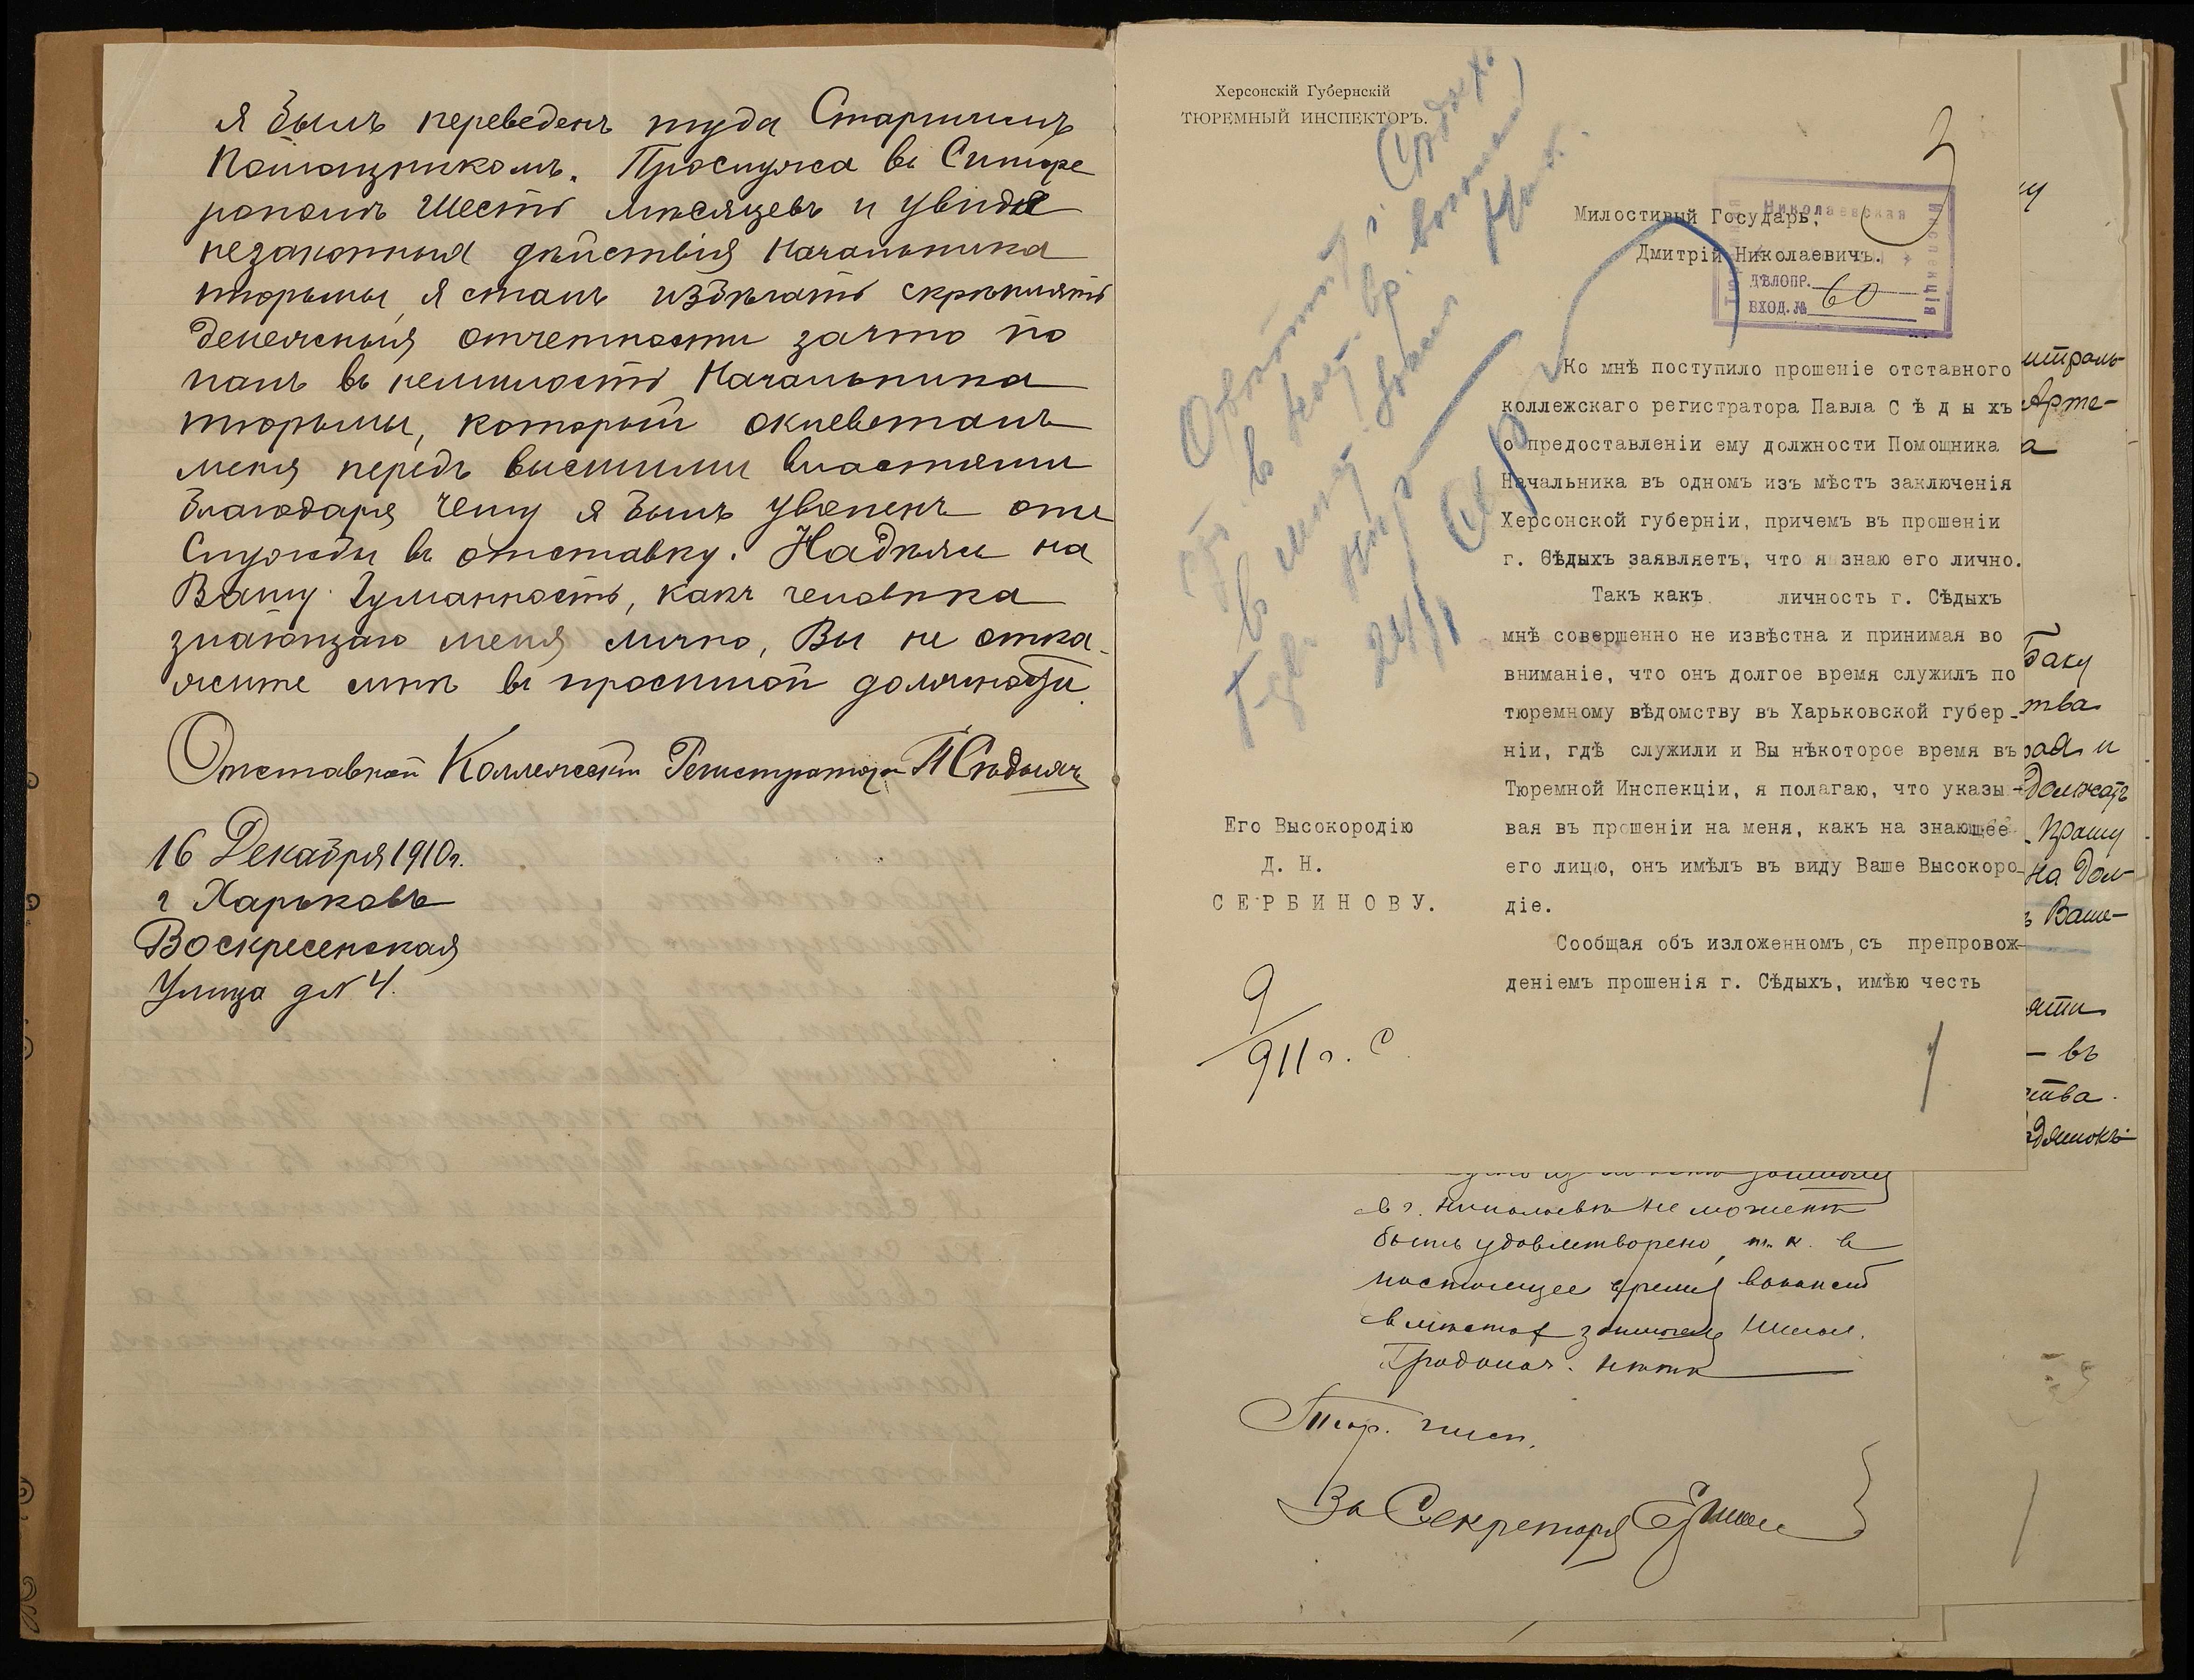 я былъ переведенъ туда Старшимъ
Помощникомъ. Прослужа въ Симфе
рополѣ шесть мѣсяцевъ и увидя
незаконныя дѣйствія Начальника
тюрьмы, я сталъ избѣгать скрѣплять
денежныя отчетности зачто по
палъ въ немилость Начальника
тюрьмы, который оклеветалъ
меня передъ высшими властями
благодаря чему я былъ уволенъ отъ
Службы въ отставку. Надѣясь на
Вашу Гуманность, какъ человѣка
знающаго меня лично, Вы не отка-
жите мнѣ въ просимой должности.
Отставной Коллежскій Регистраторъ П Сѣдыхъ
16 Декабря 1910 г.
г Харьковъ
Воскресенская
Улица д № 4.
Херсонскій Губернскій
ТЮРЕМНЫЙ ИНСПЕКТОРЪ.
Милостивый Государь,
Дмитрій Николаевичъ.
Николаевская
Инспекція
ДѢЛОПР.
ВХОД. № 60
Ко мнѣ поступило прошеніе отставного
коллежскаго регистратора Павла С ѣ д ы х ъ
о предоставленіи ему должности Помощника
Начальника въ одномъ изъ мѣстъ заключенія
Херсонской губерніи, причемъ въ прошеніи
г. Сѣдыхъ заявляетъ, что я знаю его лично.
Такъ какъ личность г. Сѣдыхъ
мнѣ совершенно не извѣстна и принимая во
вниманіе, что онъ долгое время служилъ по
тюремному вѣдомству въ Харьковской губер-
ніи, гдѣ служили и Вы нѣкоторое время въ
Тюремной Инспекціи, я полагаю, что указы-
вая въ прошеніи на меня, какъ на знающее
его лицо, онъ имѣлъ въ виду Ваше Высокоро-
діе.
Сообщая объ изложенномъ, съ препровож-
деніемъ прошенія г. Сѣдыхъ, имѣю честь
Его Высокородію
Д. Н.
С Е Р Б И Н О В У.
9
911 г. С
24/I
в г. Николаевѣ не можетъ
быть удовлетворено, т. к. въ
настоящее время вакансій
въ мѣстах заключенія Никол.
Градонач. нѣтъ
Тюр. инсп.
За Секретаря
Арте-
а
Баку
тва
и
Прошу
на дол-
Ваше-
въ